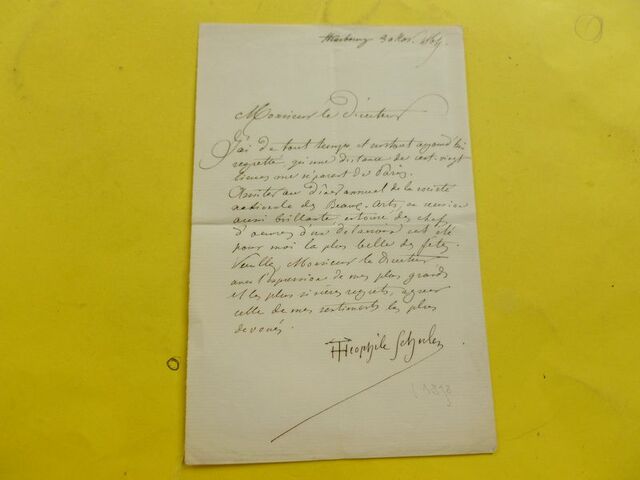 Strasbourg 30 Nov. 1864.
Monsieur le Directeur
J'ai de tout temps et surtout aujourd'hui
regretté, qu'une distance de cent vingt
lieues me séparât de Paris.
Assister au dîner annuel de la société
nationale des Beaux-Arts, en réunion
aussi brillante, entouré des chefs
d'œuvres d'un Delacroix eut été
pour moi la plus belle des fêtes.
Veuillez, Monsieur le Directeur
avec l'expression de mes plus grands
et les plus sincères regrets, agréer
celle de mes sentiments les plus
dévoués.
Théophile Schuler